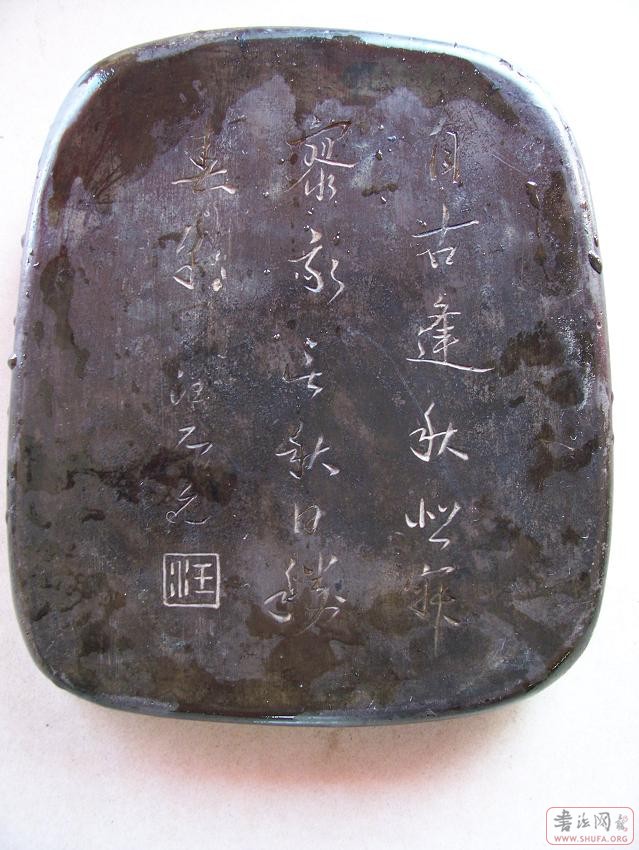 自古逢秋悲寂
寥我言秋日勝
春朝 汪
汪
书法网
WWW.SHUFA.ORG